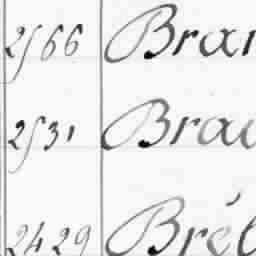 2566 Bran
2531 Brau
2429 Brél